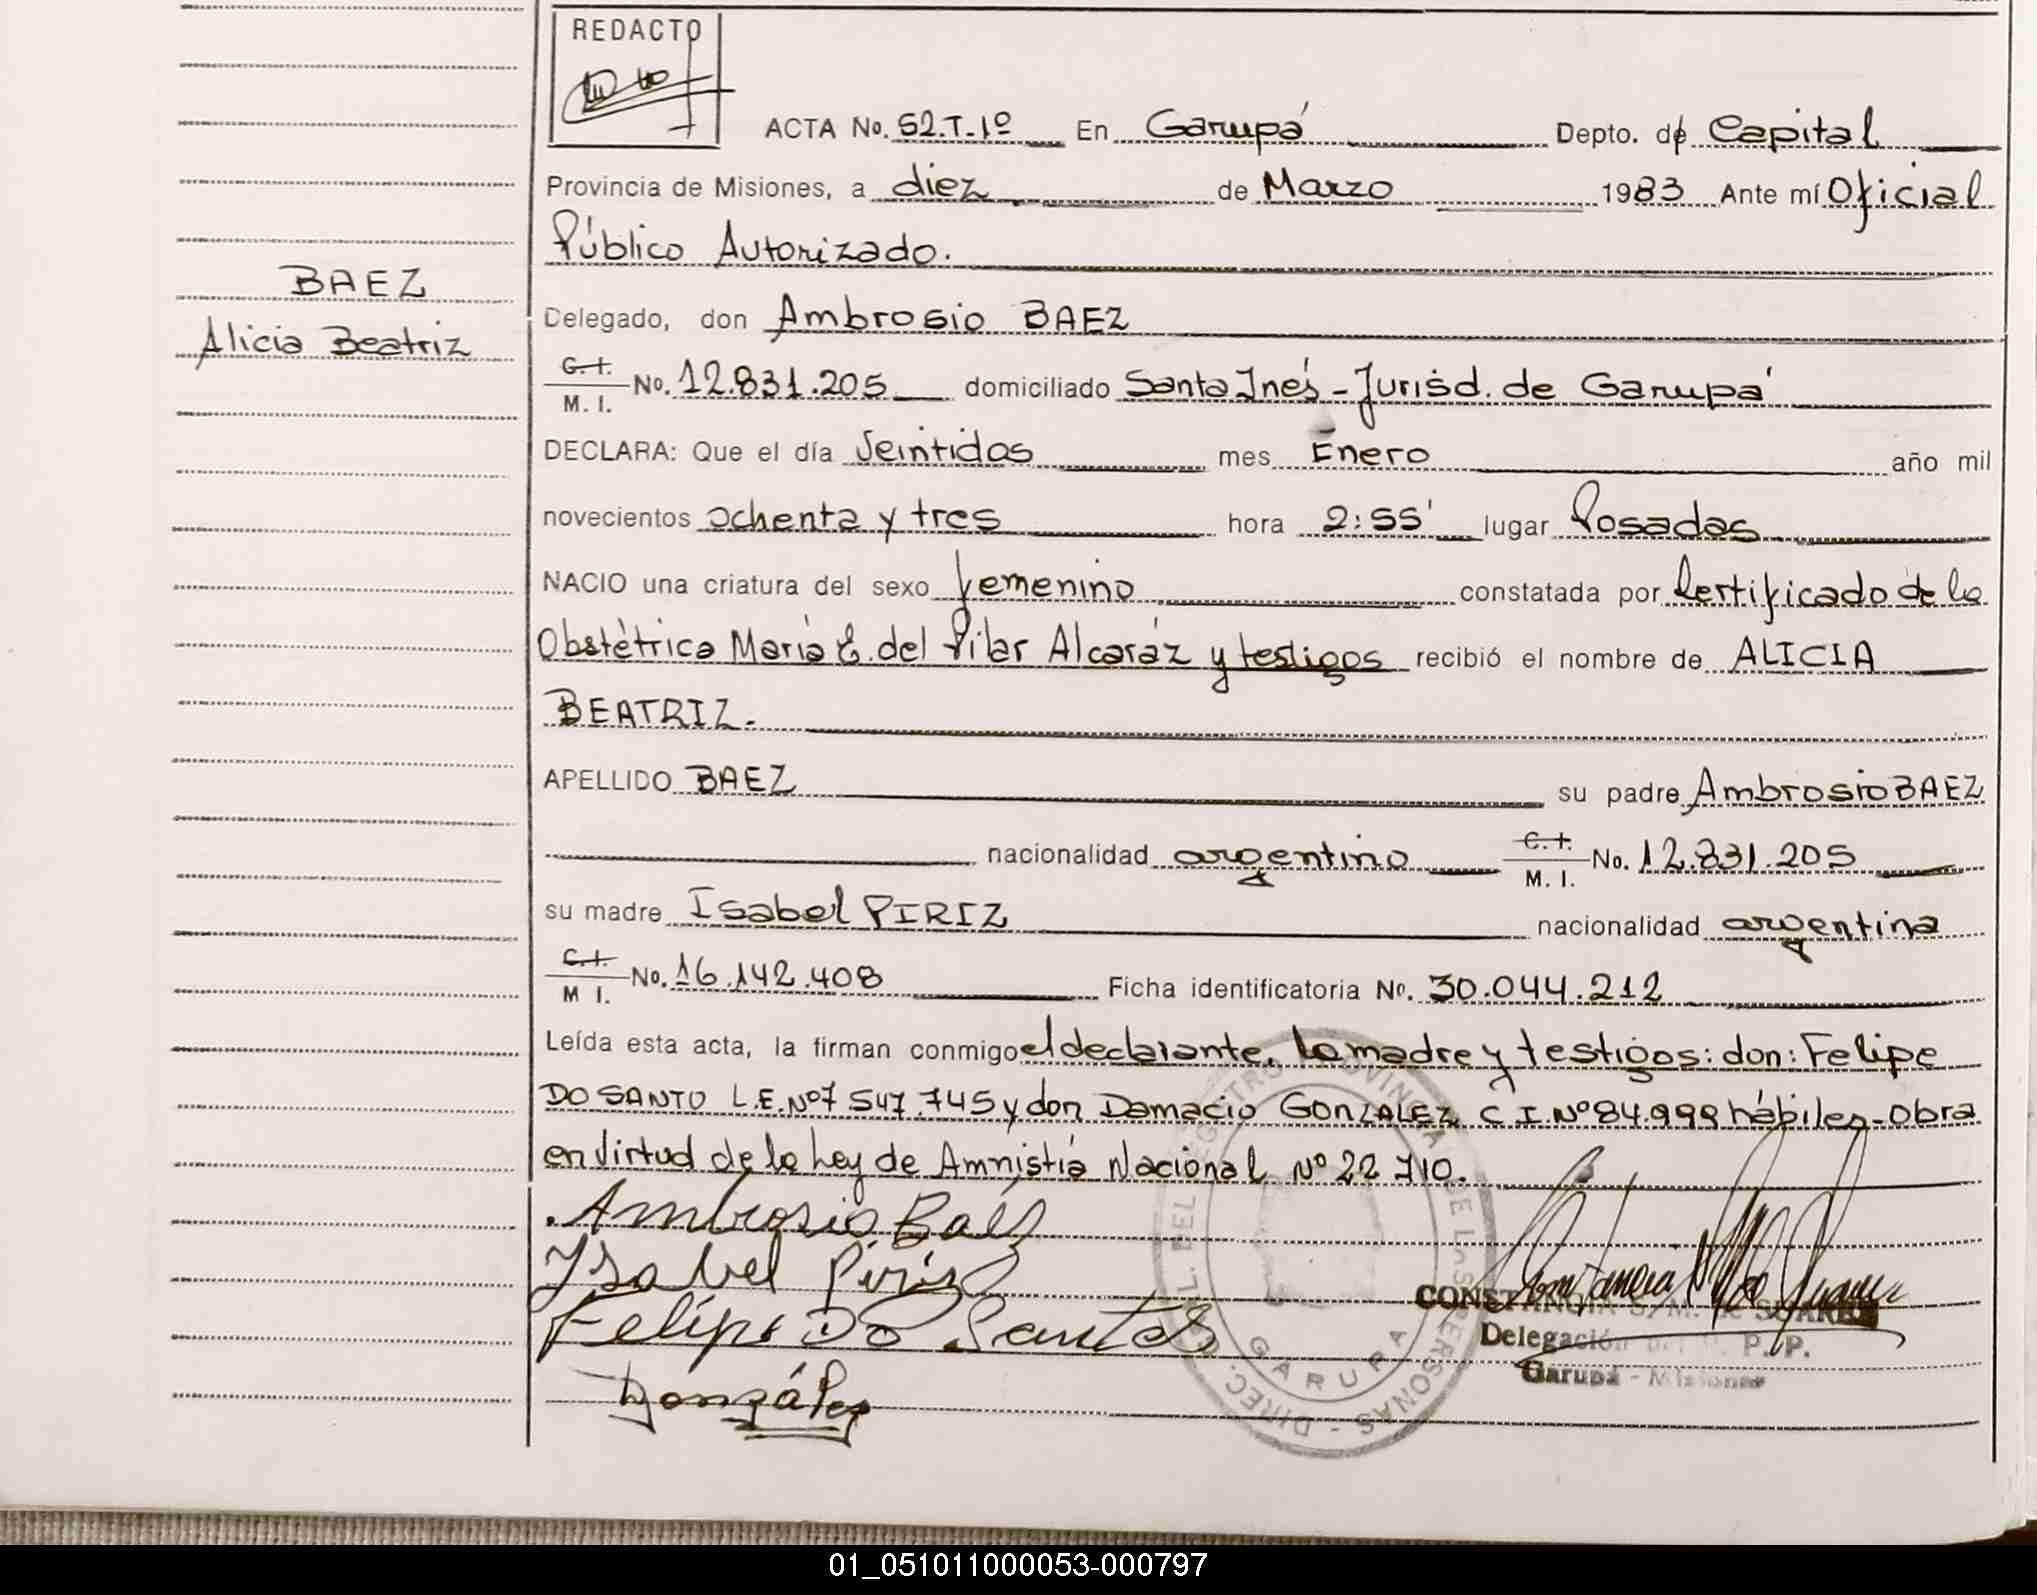 REDACTO
ACTA No. 52.T.1º En Garupá Depto. de Capital
Provincia de Misiones, a diez de Marzo 1983 Ante mí Oficial
Público Autorizado.
BAEZ
Alicia Beatriz
Delegado, don Ambrosio BAEZ
C.I. M. I. No. 12.831.205 domiciliado Santa Inés - Jurisd. de Garupá
DECLARA: Que el día Veintidos mes Enero año mil
novecientos ochenta y tres hora 2:55' lugar Posadas
NACIO una criatura del sexo femenino constatada por Certificado de la
Obstétrica María E. del Pilar Alcaráz y testigos recibió el nombre de ALICIA
BEATRIZ.
APELLIDO BAEZ su padre Ambrosio BAEZ
nacionalidad argentino C.I. M. I. No. 12.831.205
su madre Isabel PIRIZ nacionalidad argentina
C.I. M I. No. 16.142.408 Ficha identificatoria No. 30.044.212
Leída esta acta, la firman conmigo el declarante, la madre y testigos: don: Felipe
DO SANTO L.E.Nº 7 547.745 y don Damacio GONZALEZ C I.Nº 84.999 hábiles - Obra
en virtud de la Ley de Amnistía Nacional Nº 22 710.
Ambrosio Baéz
Ysabel Piriz
Felipe Do Santos
González
DIREC. GRAL. DEL REGISTRO PROVINCIAL DE LAS PERSONAS -
GARUPA
CONSTANCIA S. M. de SUAREZ
Delegación del R. P. P.
Garupá - Misiones
01_051011000053-000797